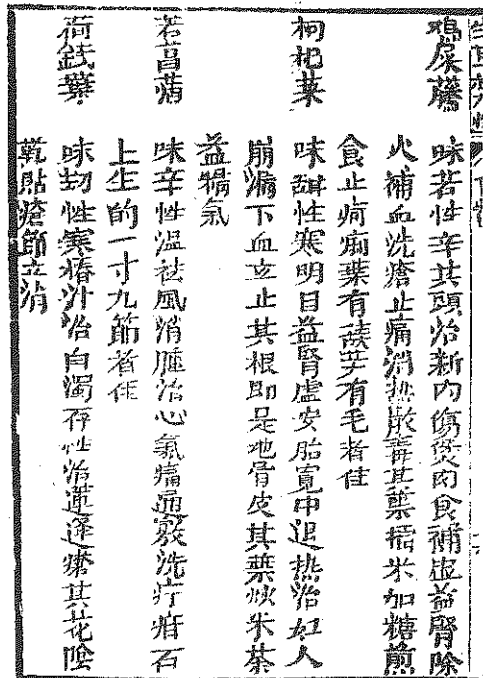 鷄屎藤
味苦性辛其頭治新內傷煲肉食補虛益腎除
火補血洗瘡止痛消热散毒其葉擂米加糖煎
食止疴痢葉有毛者佳
枸杞菜
味甜性寒明目益腎虛安胎寬中退热治婦人
崩漏下血立止其根即是地骨皮其葉炒米茶
益腸氣
若菖蒲
味辛性温祛風消腫治心氣痛通竅洗疔疳石
上生的一寸九節者佳
荷錢葉
味劫性寒樁汁治白濁存性治蓮蓬瘡其花陰
乾貼瘡節立消